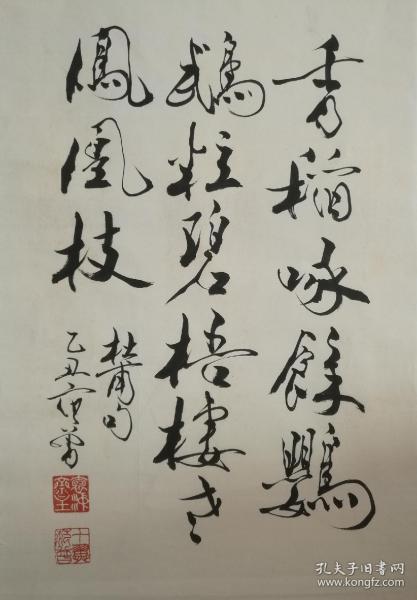 香稻啄餘鸚
鵡粒碧梧棲老
鳳凰枝
杜甫句
乙丑 范曾
孔夫子旧书网
www.kongfz.com